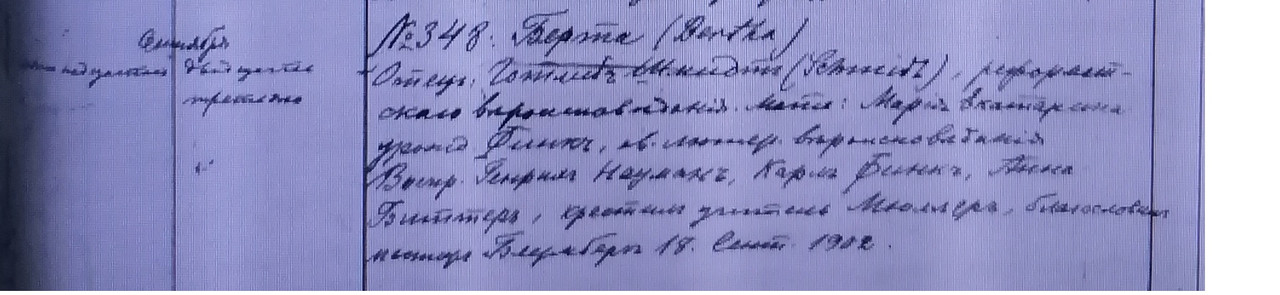 Сентября
надцатаго двадцать
третьяго
№ 348. Берта (Bertha)
Отецъ: Готлибъ Шмидтъ (Schmidt), реформат-
скаго вѣроисповѣданія. Мать: Марія Екатарина
урожд. Финкъ, ев. лютер. вѣроисповѣданія
Воспр. Генрихъ Науманъ, Карлъ Финкъ, Анна
Биттеръ, крестилъ учитель Мюллеръ, благословилъ
пасторъ 18. Сент. 1902.